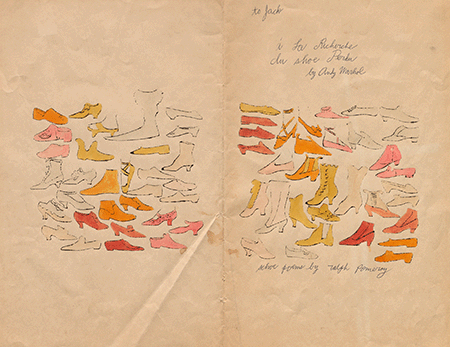 to Jack
à La Recherche
du shoe Perdu
by Andy Warhol
shoe poems by ralph pomeroy.